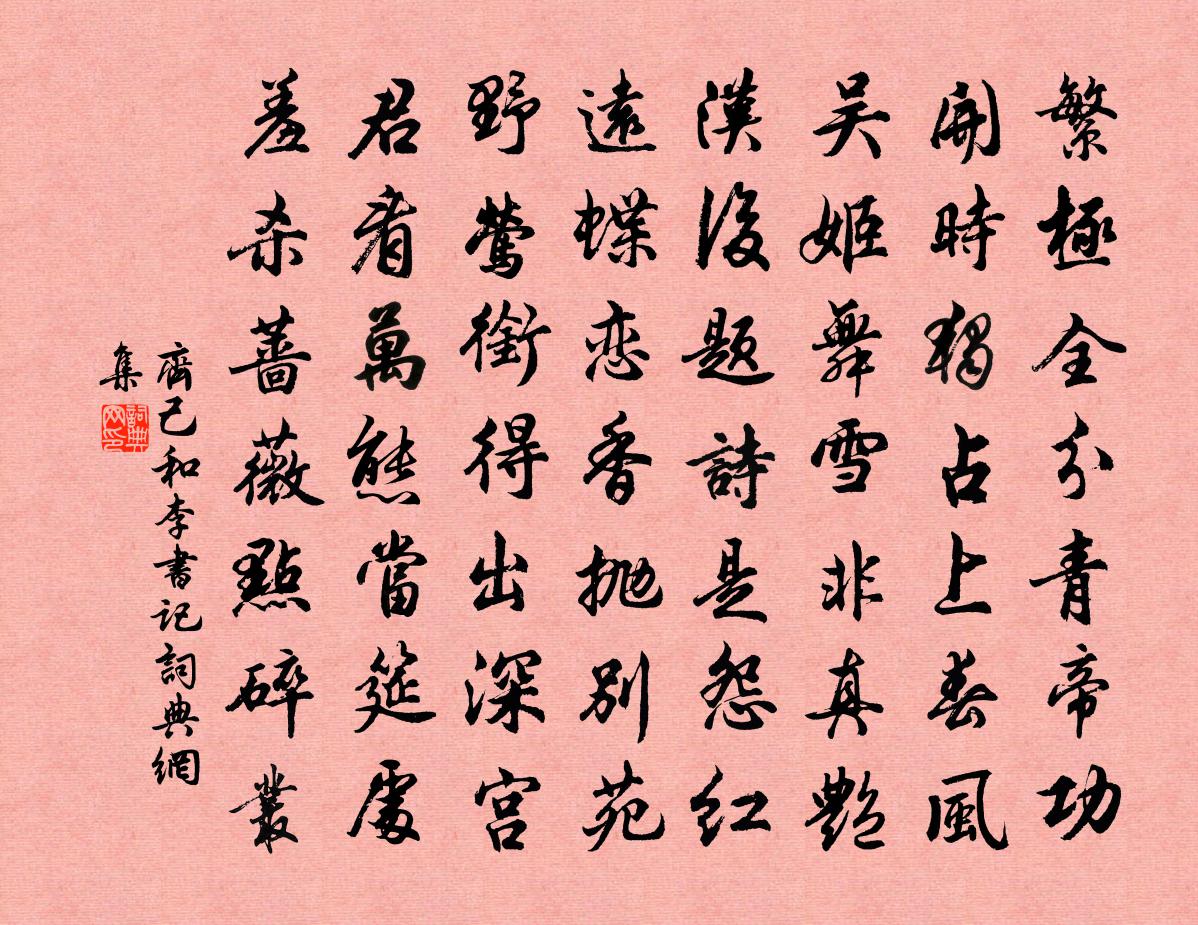 繁極全分青帝功
開時獨占上春風
吳姬舞雪非真艷
漢後題詩是怨紅
遠蝶恋香拋別苑
野鶯銜得出深宮
君看萬態當筵處
羞杀薔薇點碎叢
齊己和李書記詞典網
集
詞典网印